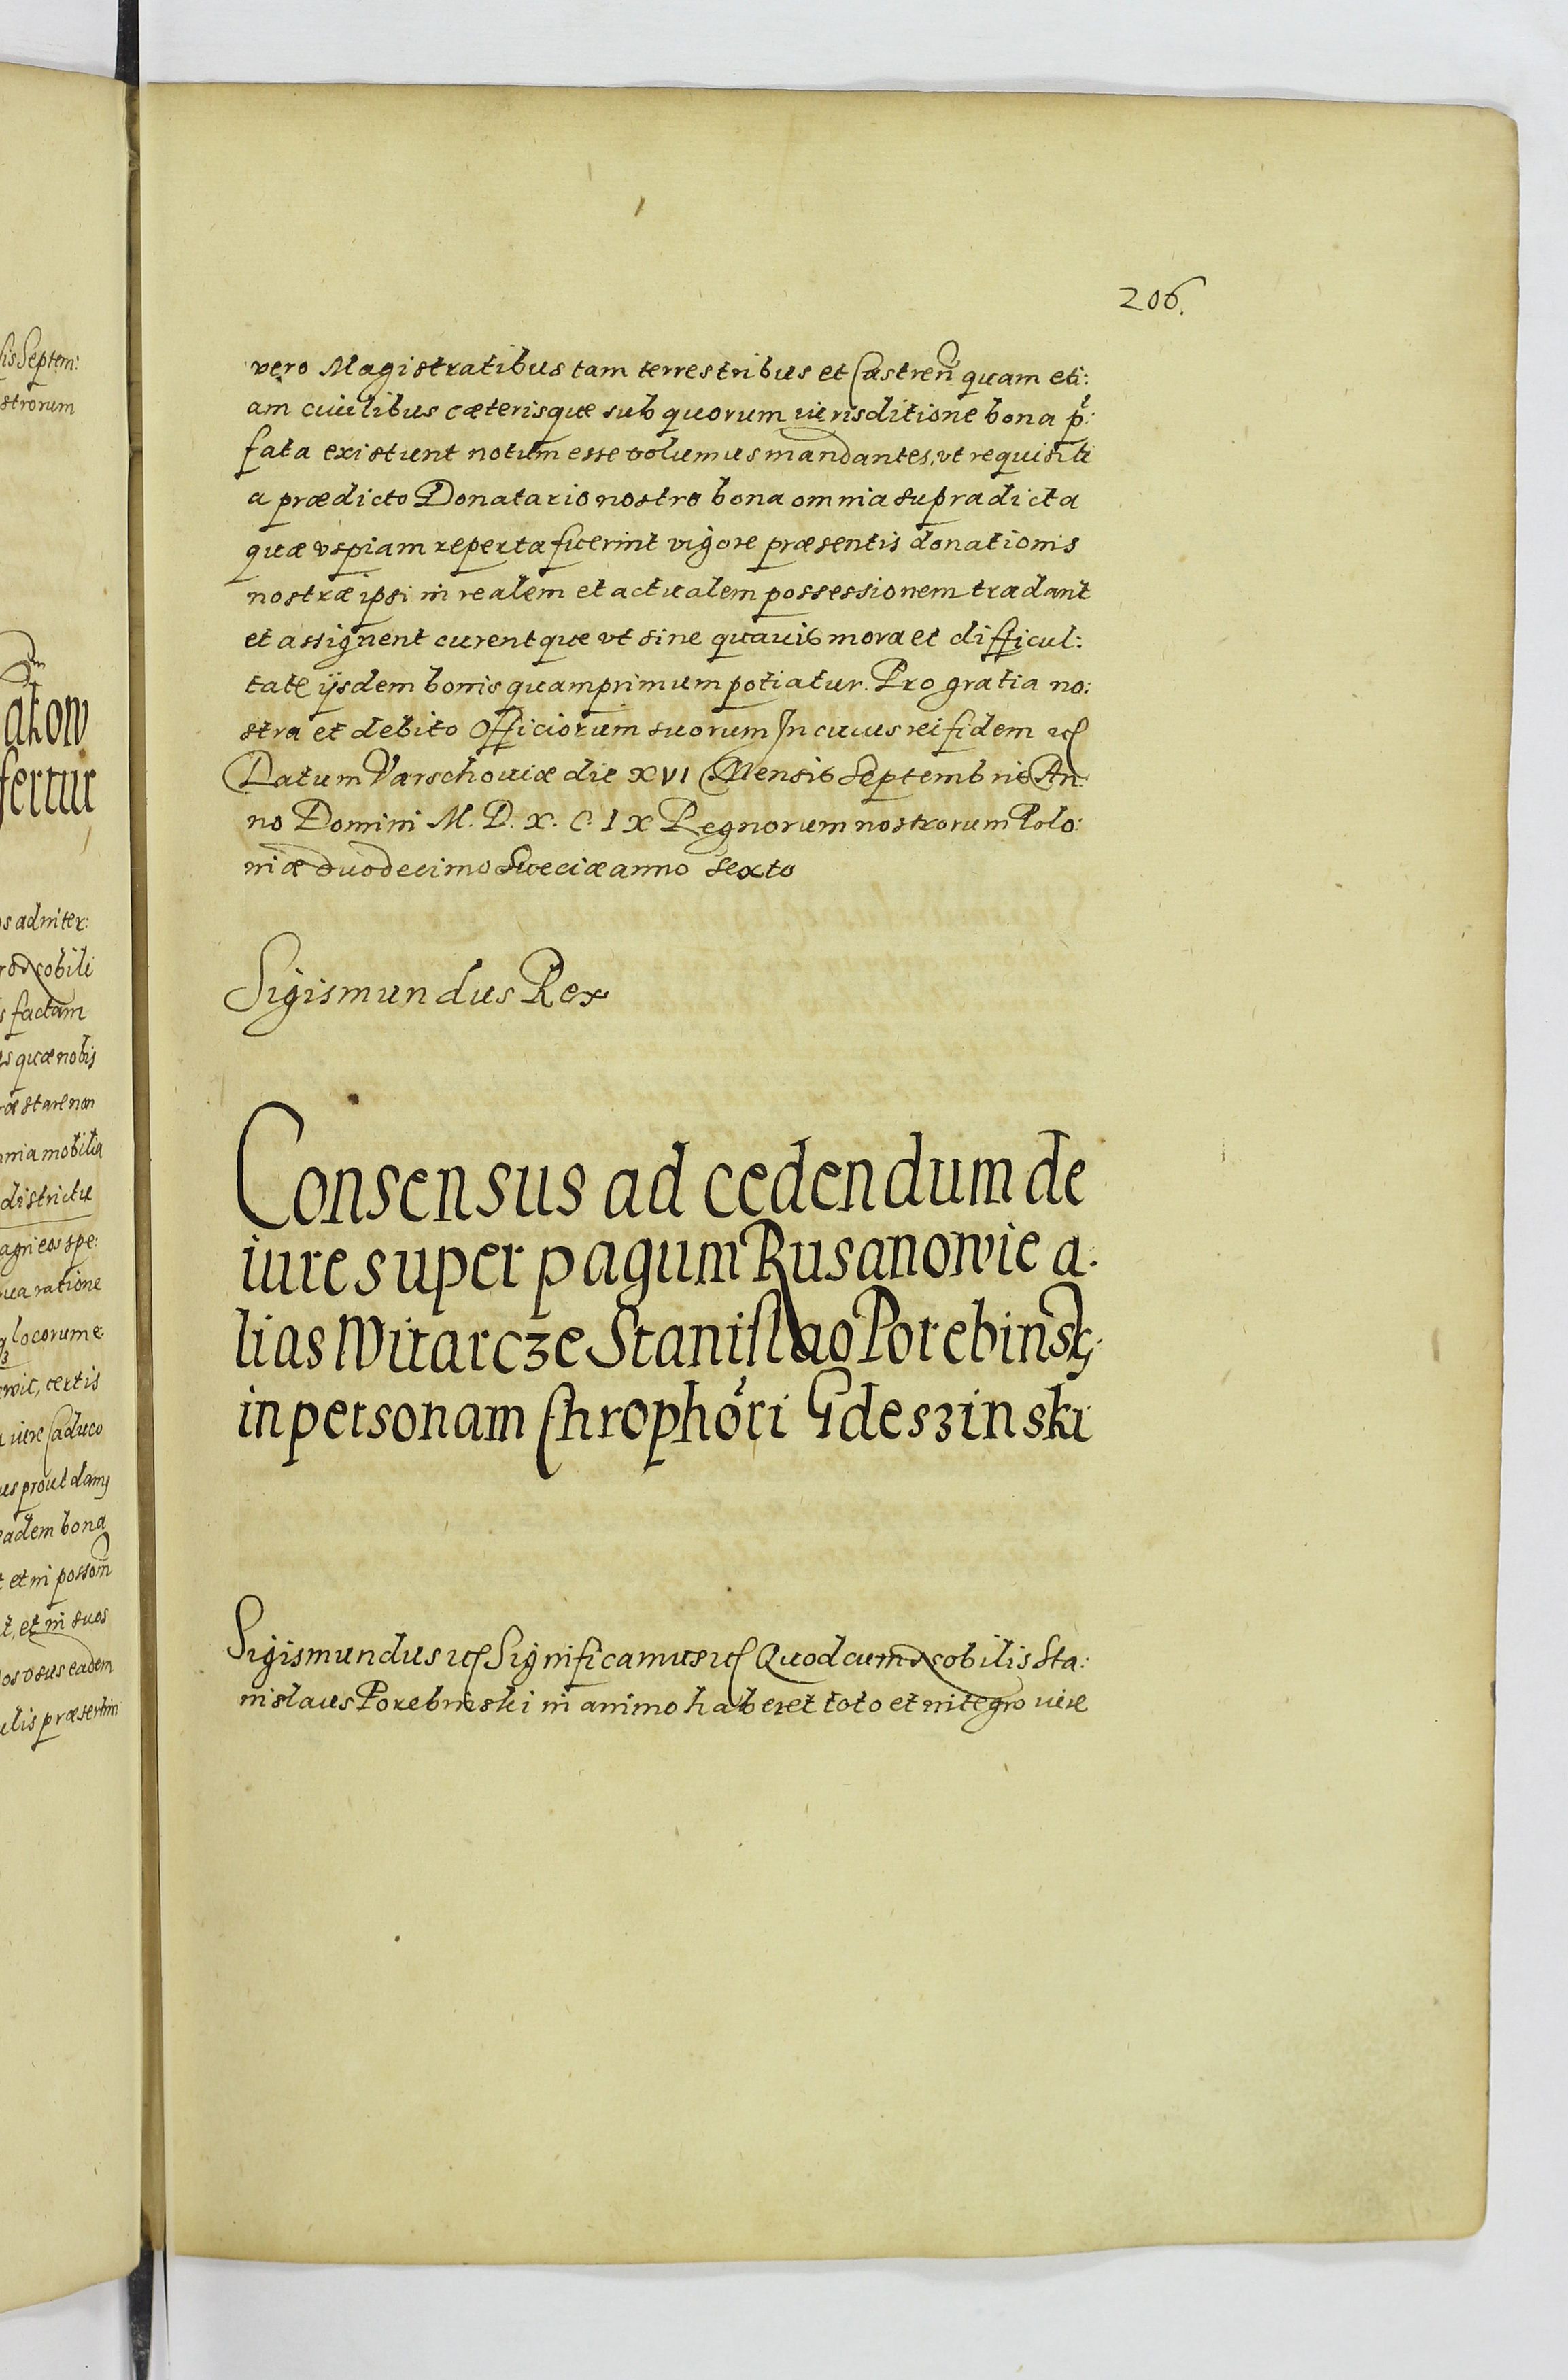 206.
vero Magistratibus tam terrestribus et Castren̄ quam eti:
am ciuilibus cæterisque sub quorum iurisditione bona p̃:
fata existunt notum esse volumus mandantes, vt requisiti
a prædicto Donatario nostro bona omnia supradicta
quæ vspiam reperta fuerint vigore præsentis donationis
nostræ ipsi in realem et actualem possessionem tradant
et assignent curentque vt sine quauis mora et difficul:
tate ijsdem bonis quamprimum potiatur. Pro gratia no:
stra et debito Officiorum suorum In cuius rei fidem etc
Datum Varschouiæ die XVI Mensis Septembris An:
no Domini M. D. X. C. IX Regnorum nostrorum Polo:
niæ duodecimo Sueciæ anno sexto
Sigismundus Rex
Consensus ad cedendum de
iure super pagum Rusanowie a:
lias Witarcze Stanislao Porebinsk:
in personam Chrophori Gdeszinski
Sigismundus etc Significamus etc Quod cum Nobilis Sta:
nislaus Porebinski in animo haberet toto et integro iure
sis Septem:
strorum
akow
fertur
s admiter:
Nobili
s factam
s quæ nobis
stare non
nia mobilia
districtu
agri eos spe:
ua ratione
locorum e
wic, certis
iure Caduco
us prout damus
eadem bona
t et in possom̄
t, et in suos
eadem
præsertim